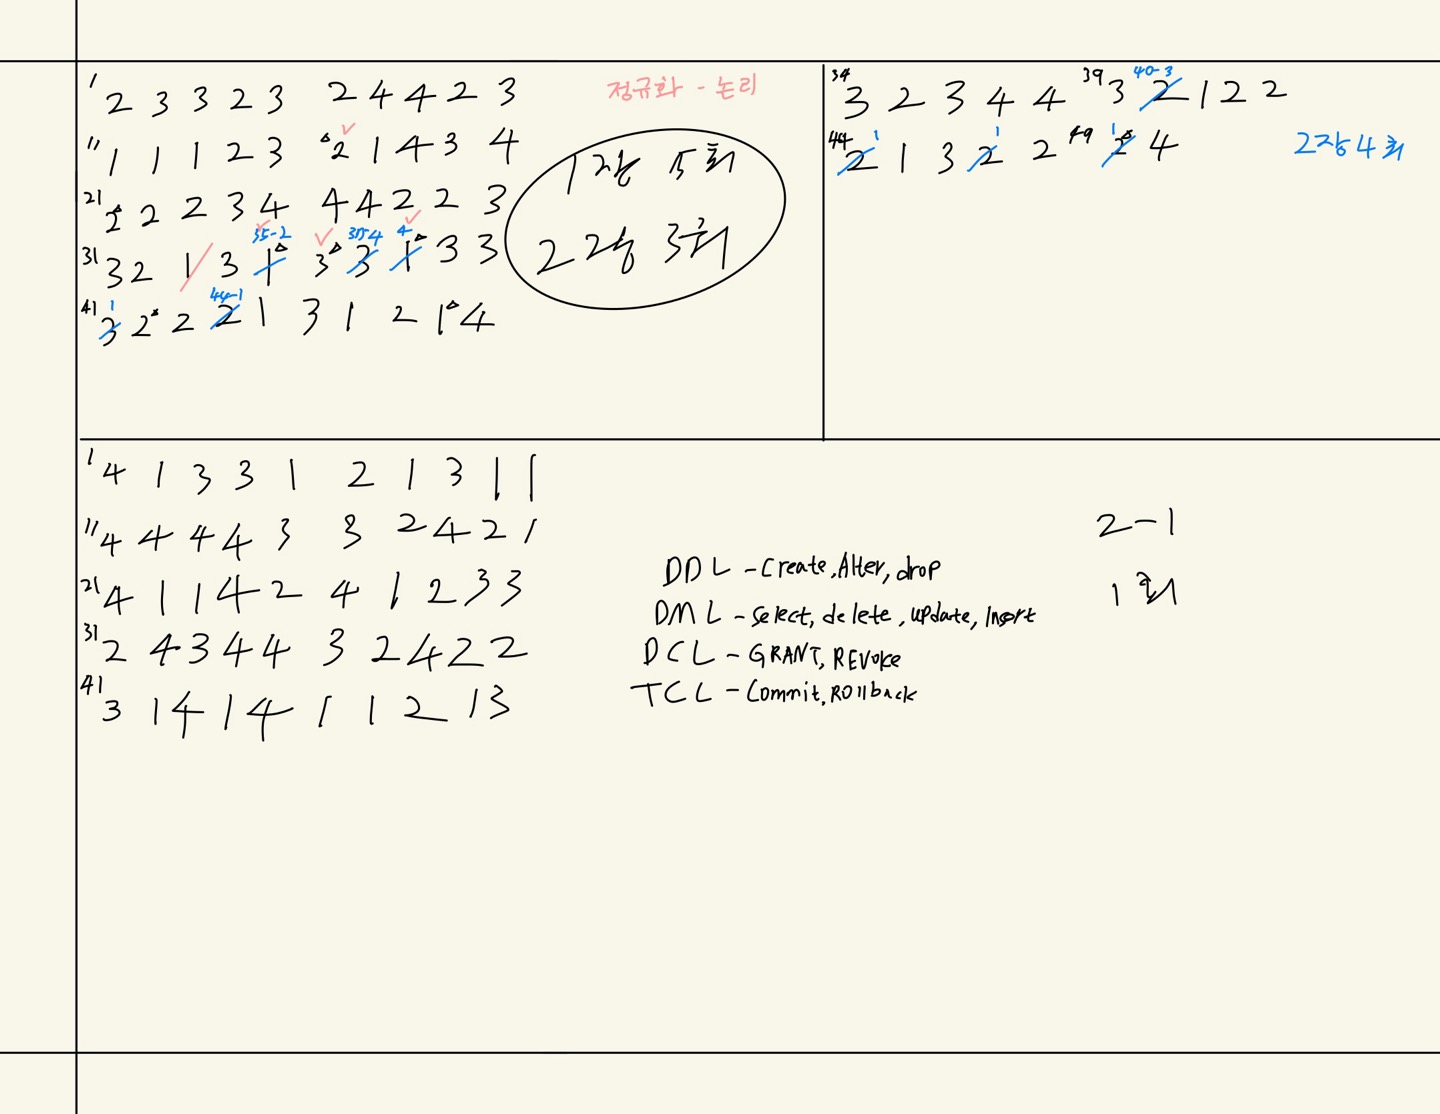 1 2 3 3 2 3 2 4 4 2 3
정규화 - 논리
11 1 1 1 2 3 2 1 4 3 4
21 2 2 2 3 4 4 4 2 2 3
35-2 4
31 3 2 1 3 1 3 3 1 3 3
1 44-1
41 3 2 2 2 1 3 1 2 1 4
1장 5회
2장 3회
40-3
34 3 2 3 4 4 39 3 2 1 2 2
1 1 1
44 2 1 3 2 2 49 2 4
2장 4회
1 4 1 3 3 1 2 1 3 1 1
11 4 4 4 4 3 3 2 4 2 1
21 4 1 1 4 2 4 1 2 3 3
31 2 4 3 4 4 3 2 4 2 2
41 3 1 4 1 4 1 1 2 1 3
DDL - Create, Alter, drop
DML - Select, delete, update, Insert
DCL - GRANT, REVoke
TCL - Commit, Rollback
2-1
1회